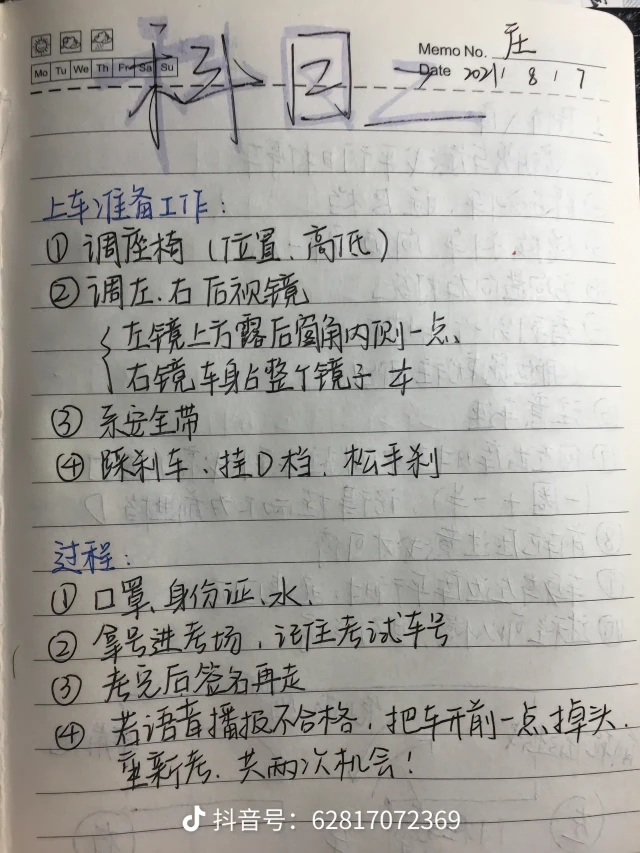 Memo No. 庄
Mo Tu We Th Fr Sa Su
Date 2021 8 17
科目二
上车准备工作：
① 调座椅（位置、高低）
② 调左、右后视镜
左镜上方露后窗角内侧一点、
右镜车身占整个镜子
③ 系安全带
④ 踩刹车、挂D档、松手刹
过程：
① 口罩、身份证、水、
② 拿号进考场，记住考试车号
③ 考完后签名再走
④ 若语音播报不合格，把车开前一点掉头，
重新考、共两次机会！
抖音号：62817072369